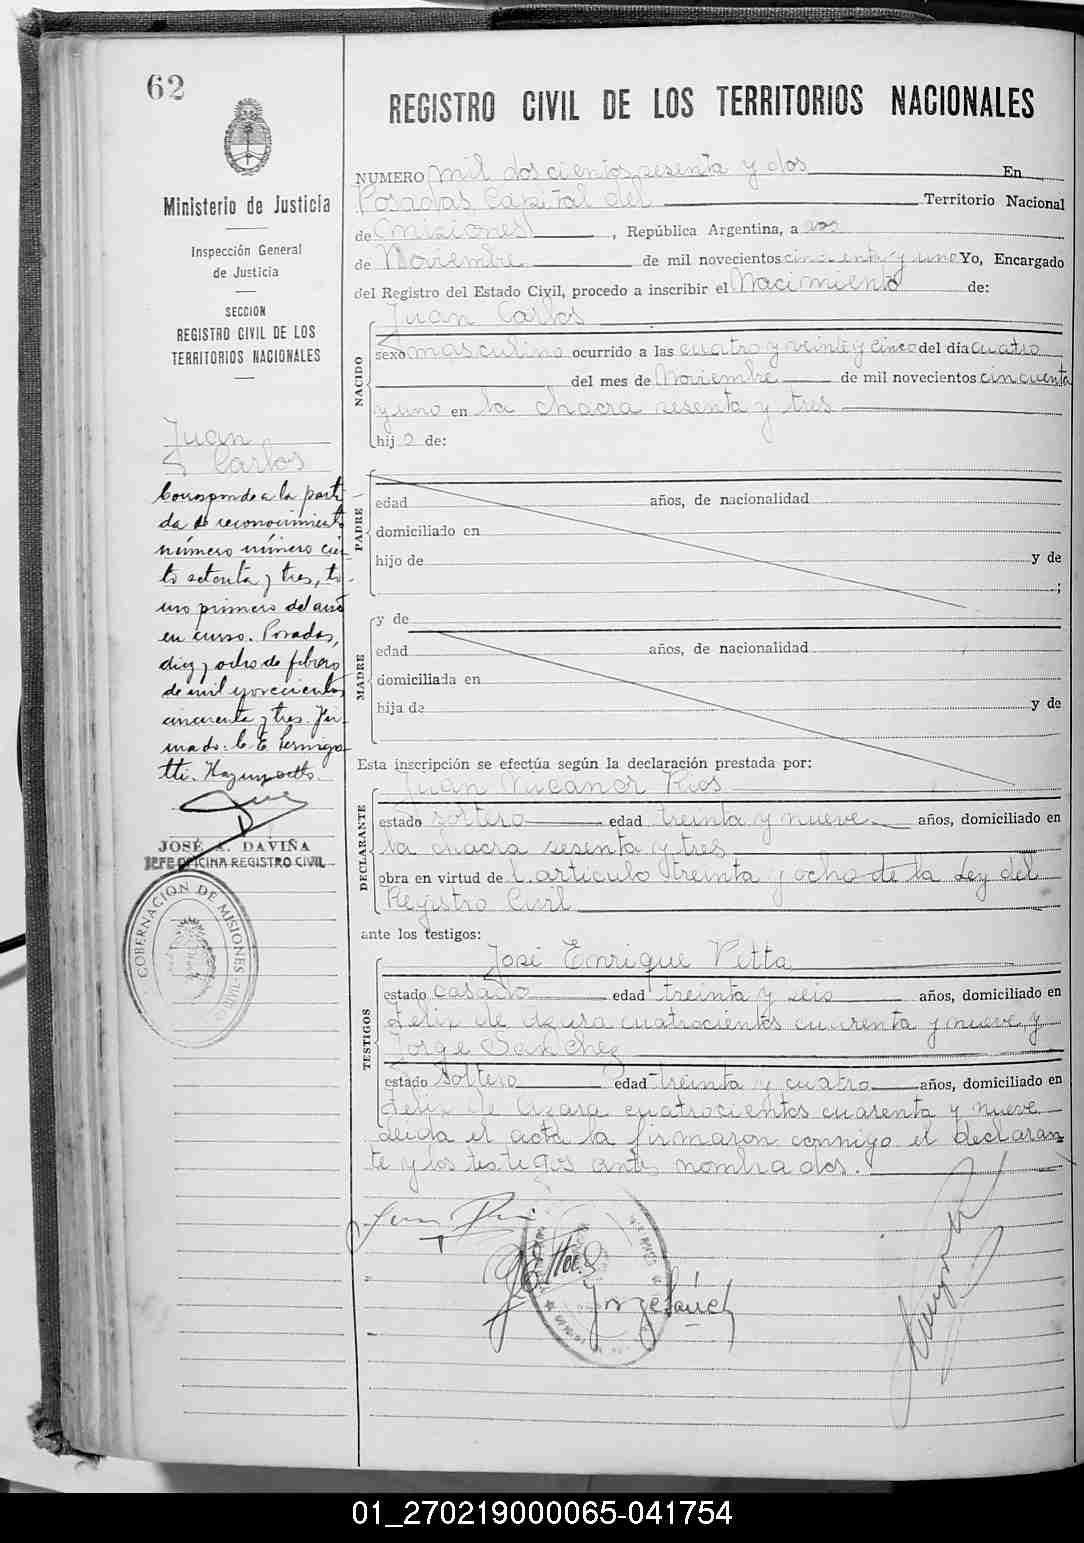 62
Ministerio de Justicia
Inspección General
de Justicia
SECCION
REGISTRO CIVIL DE LOS
TERRITORIOS NACIONALES
Juan
Carlos
Corresponde a la parti
da de reconocimiento
número número cien
to setenta y tres, to-
mo primero del año
en curso. Posadas,
diez y ocho de febrero
de mil novecientos
cincuenta y tres. Fir
mado: C. E.
JOSÉ A. DAVIÑA
JEFE OFICINA REGISTRO CIVIL
GOBERNACION DE MISIONES
REGISTRO CIVIL DE LOS TERRITORIOS NACIONALES
NUMERO mil doscientos sesenta y dos En
Posadas Capital del Territorio Nacional
de Misiones, República Argentina, a
de Noviembre de mil novecientos cincuenta y uno Yo, Encargado
del Registro del Estado Civil, procedo a inscribir el Nacimiento de:
NACIDO
Juan Carlos
sexo masculino ocurrido a las cuatro y veinte y cinco del día cuatro
del mes de Noviembre de mil novecientos cincuenta
y uno en la chacra sesenta y tres
hij o de:
PADRE
edad años, de nacionalidad
domiciliado en
hijo de y de
;
MADRE
y de
edad años, de nacionalidad
domiciliada en
hija de y de
Esta inscripción se efectúa según la declaración prestada por:
DECLARANTE
Juan Nicanor Rios
estado soltero edad treinta y nueve años, domiciliado en
la chacra sesenta y tres
obra en virtud de l artículo treinta y ocho de la Ley del
Registro Civil
ante los testigos:
TESTIGOS
José Enrique Vetta
estado casado edad treinta y seis años, domiciliado en
Felix de Azara cuatrocientos cuarenta y nueve y
Jorge Sanchez
estado soltero edad treinta y cuatro años, domiciliado en
Felix de Azara cuatrocientos cuarenta y nueve
Leida el acta la firmaron conmigo el declaran
te y los testigos antes nombrados.
Jorge Sánchez
01_270219000065-041754